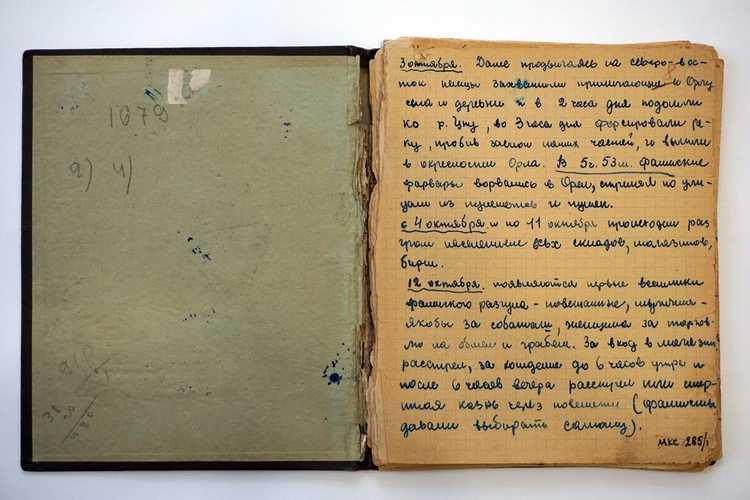 1679
2) 4)
3 октября. Далее продвигаясь на северо-вос-
ток немцы захватили прилегающие к Орлу
села и деревни и в 2 часа дня подошли
ко р. Цну, во 3 часа дня форсировали ре-
ку, пробив заслон наших частей, и вышли
в окрестности Орла. В 5ч. 53м. фашиские
варвары ворвались в Орел, стреляя по ули-
цам из пулеметов и пушек.
с 4 октября и по 11 октября происходил раз
гром населением всех складов, магазинов,
бирж.
12 октября. появляются первые вестники
фашиского разгула - повешанные, мужчина -
якобы за саботаж, женщина за торгов-
лю на обмен и грабеж. За вход в магазин
расстрел, за хождение до 6 часов утра и
после 6 часов вечера расстрел или смер-
тная казнь через повешение (фашисты
давали выбирать самому).
МКС 285/1